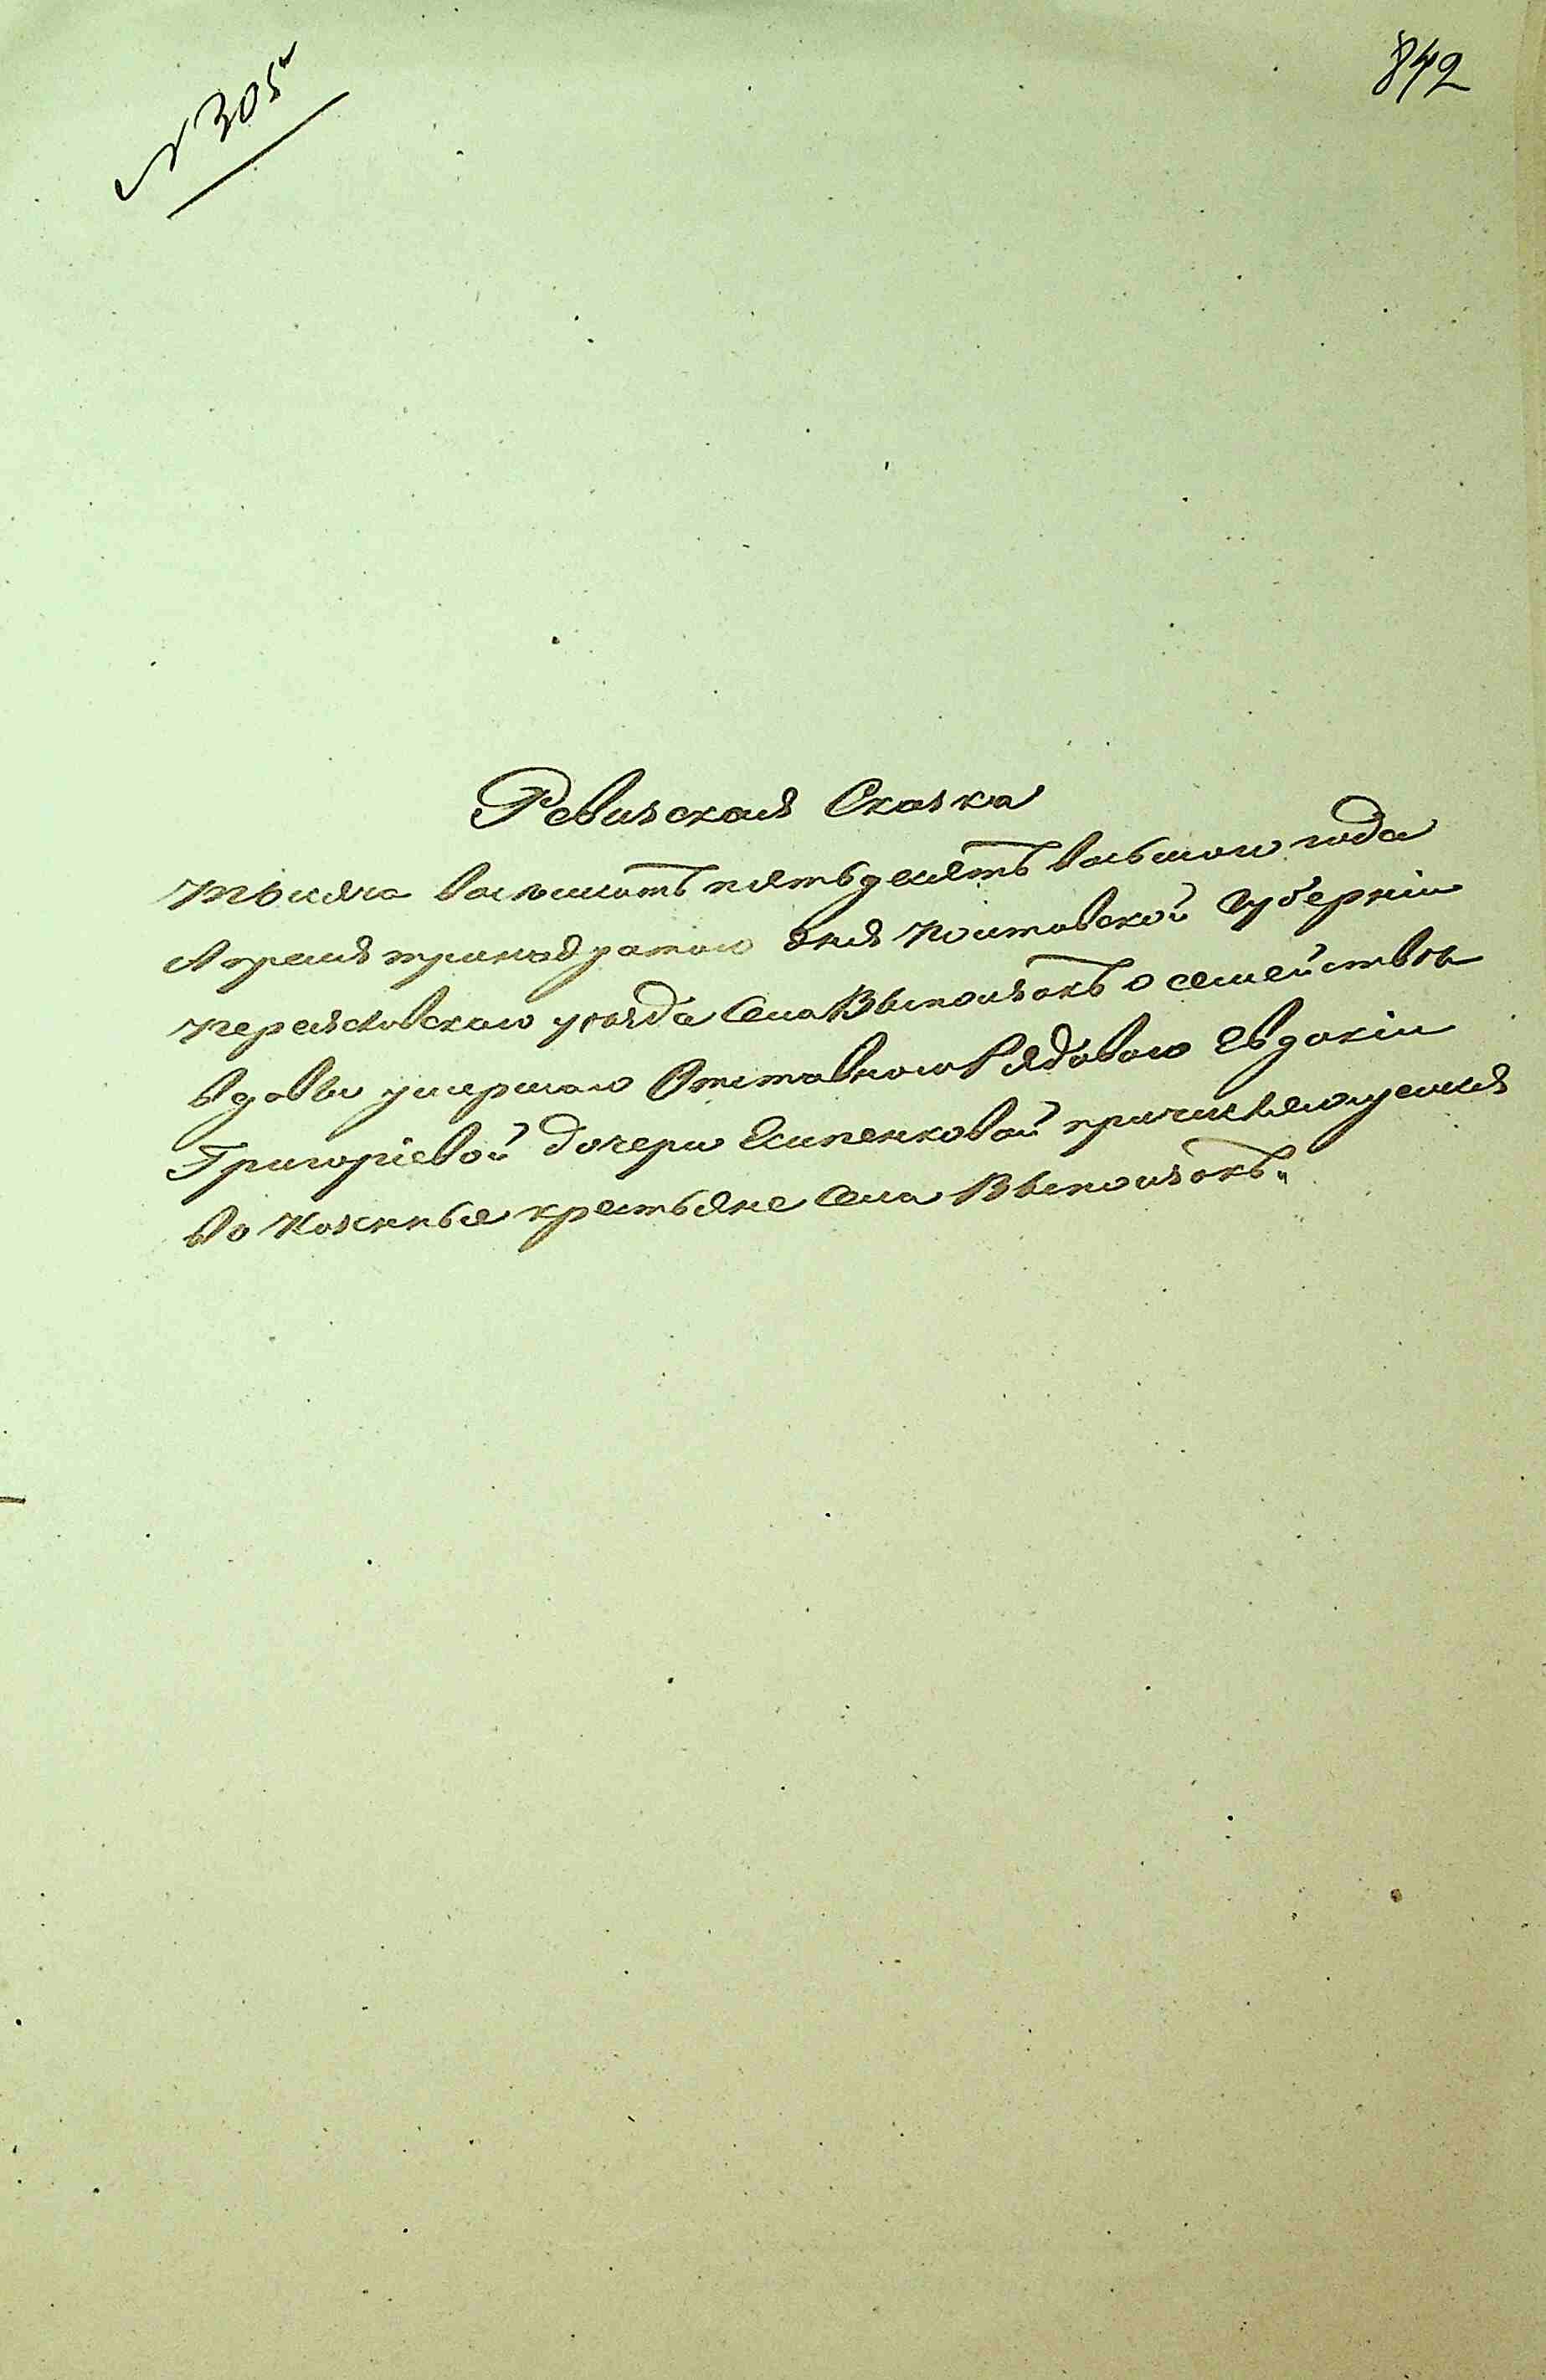 № 305
842
Ревизская Сказка
Тысяча восемсотъ пятьдесятъ восьмого года
Апреля тринадцатого дня Полтавской Губернии
Переяславского уезда Села Выползокъ о семействе
вдовы умершаго Отставного Рядового Евдокіи
Григоріевой дочери Есипенковой причисляющейся
во крестьяне Села Выползокъ